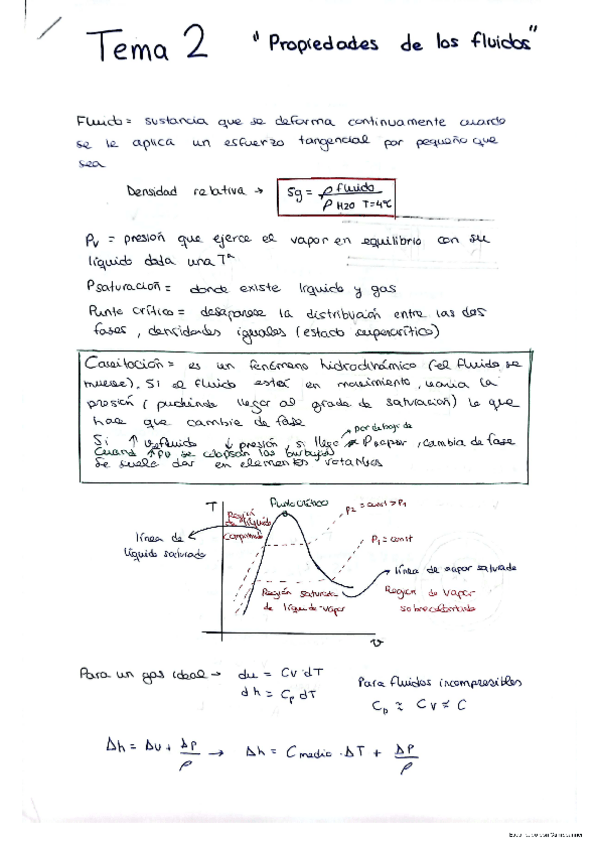 Tema 2 "Propiedades de los fluidos"
Fluido = sustancia que se deforma continuamente cuando
se le aplica un esfuerzo tangencial por pequeño que
sea
Densidad relativa → Sg = ρ fluido / ρ H2O T=4ºC
Pv = presión que ejerce el vapor en equilibrio con su
líquido dada una Tª
Psaturación = donde existe líquido y gas
Punto crítico = desaparece la distribución entre las dos
fases, densidades iguales (estado supercrítico)
Cavitación = es un fenómeno hidrodinámico (el fluido se
mueve). Si el fluido está en movimiento, varia la
presión (pudiendo llegar al grado de saturación) lo que
hace que cambie de fase
por debajo de
Si ↑ v fluido ↓ presión, si llega Pvapor, cambia de fase
Cuand ↑Pv se colapsan las burbujas
Se suele dar en elementos rotantes
T
Punto crítico
P2 = const > P1
Región
de líquido
comprimido
línea de
líquido saturado
P1 = const
línea de vapor saturado
Región saturada
de líquido-vapor
Región de vapor
sobrecalentado
v
Para un gas ideal → du = Cv·dT
dh = Cp dT
Para fluidos incompresibles
Cp ≈ Cv ≈ C
Δh = Δu + Δp/ρ → Δh = Cmedio · ΔT + Δp/ρ